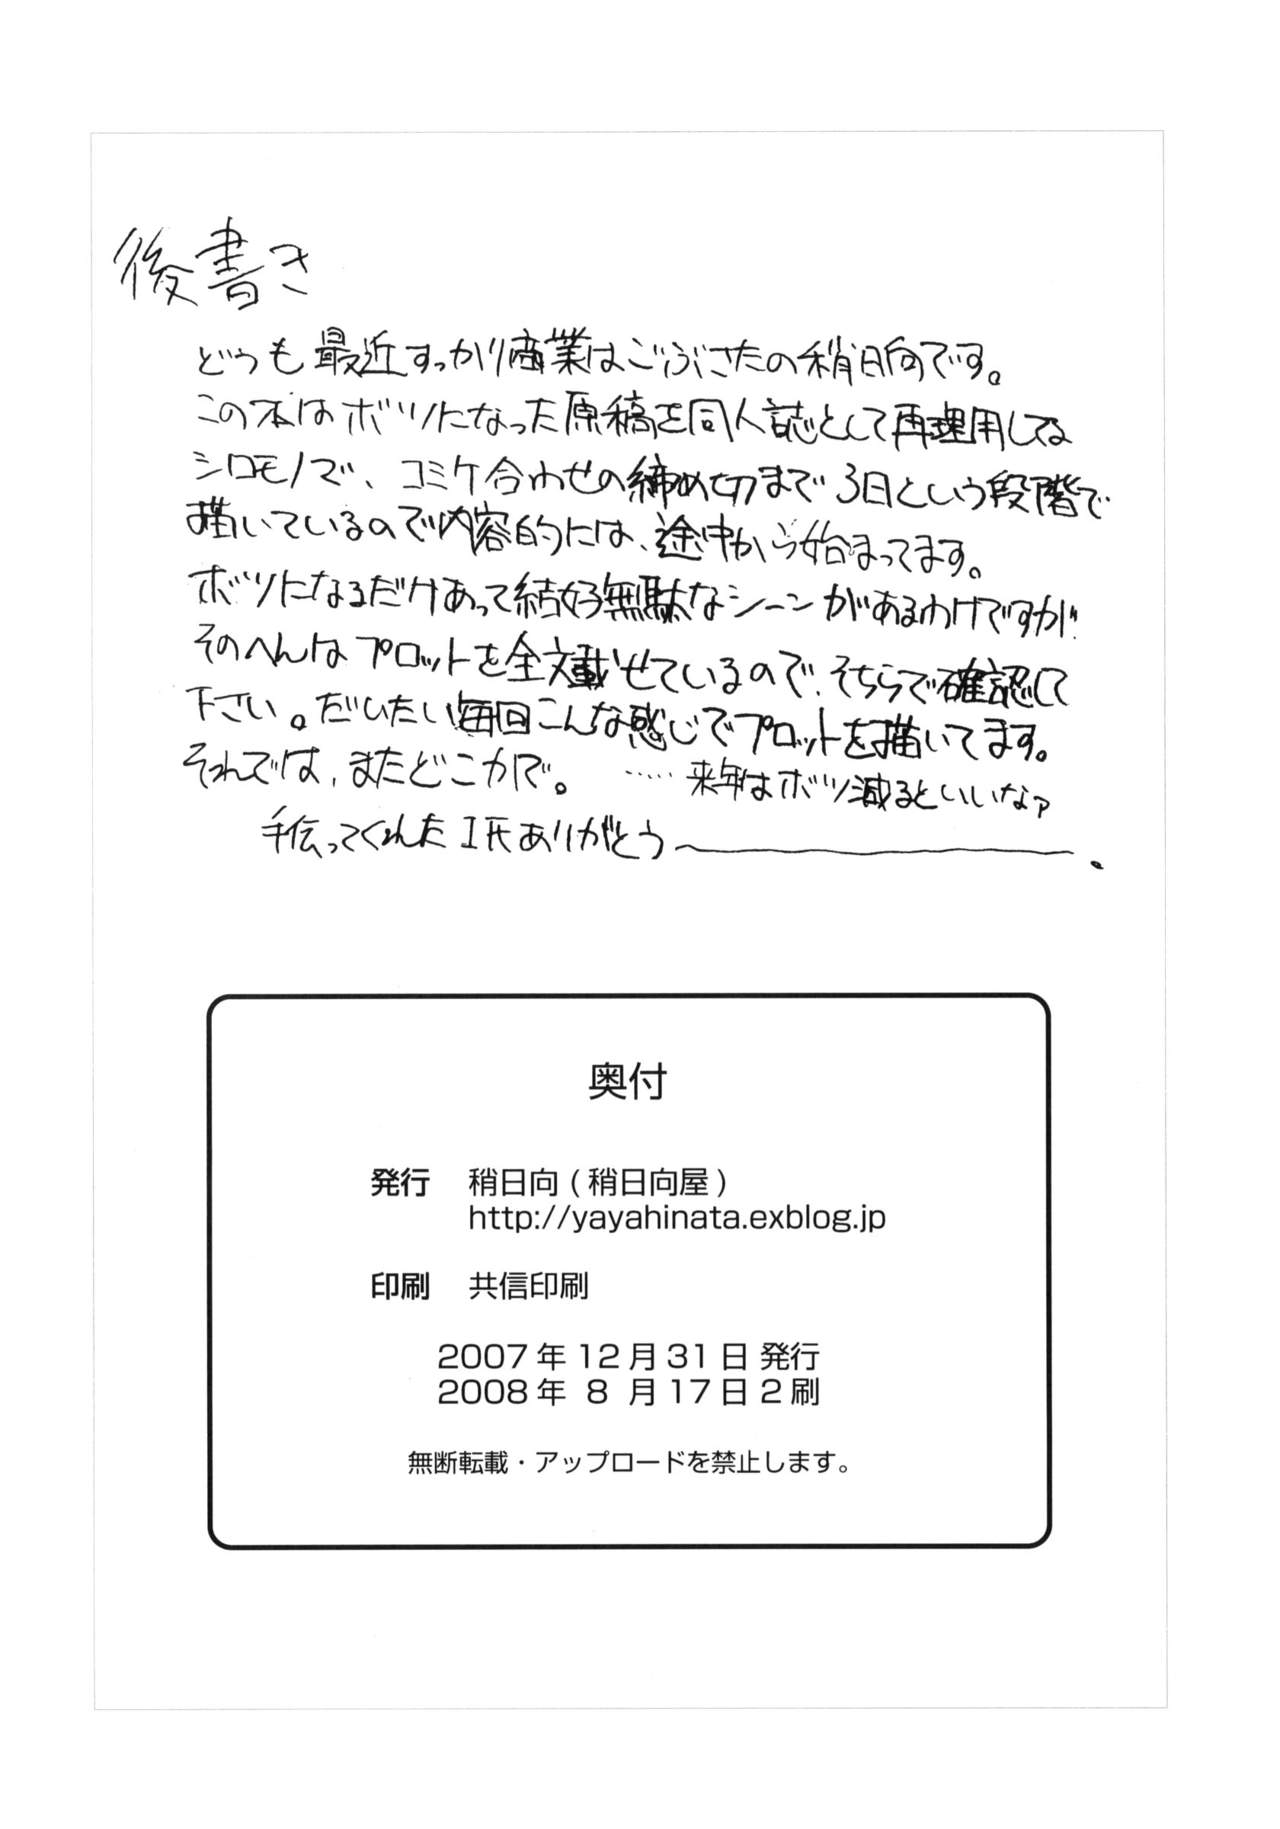 後書き
どうも最近すっかり商業はごぶさたの稍日向です。
この本はボツになった原稿を同人誌として再理用してる
シロモノで、コミケ合わせの締め切まで3日という段階で
描いているので内容的には、途中から始まってます。
ボツになるだけあって結好無駄なシーンがあるわけですが
そのへんはプロットを全文載せているので、そちらで確認して
下さい。だいたい毎回こんな感じでプロットを描いてます。
それでは、またどこかで。 ……来年はボツ減るといいなァ
手伝ってくれたI氏ありがとう〜。
奥付
発行 稍日向(稍日向屋)
http://yayahinata.exblog.jp
印刷 共信印刷
2007年12月31日 発行
2008年 8 月17日 2 刷
無断転載・アップロードを禁止します。